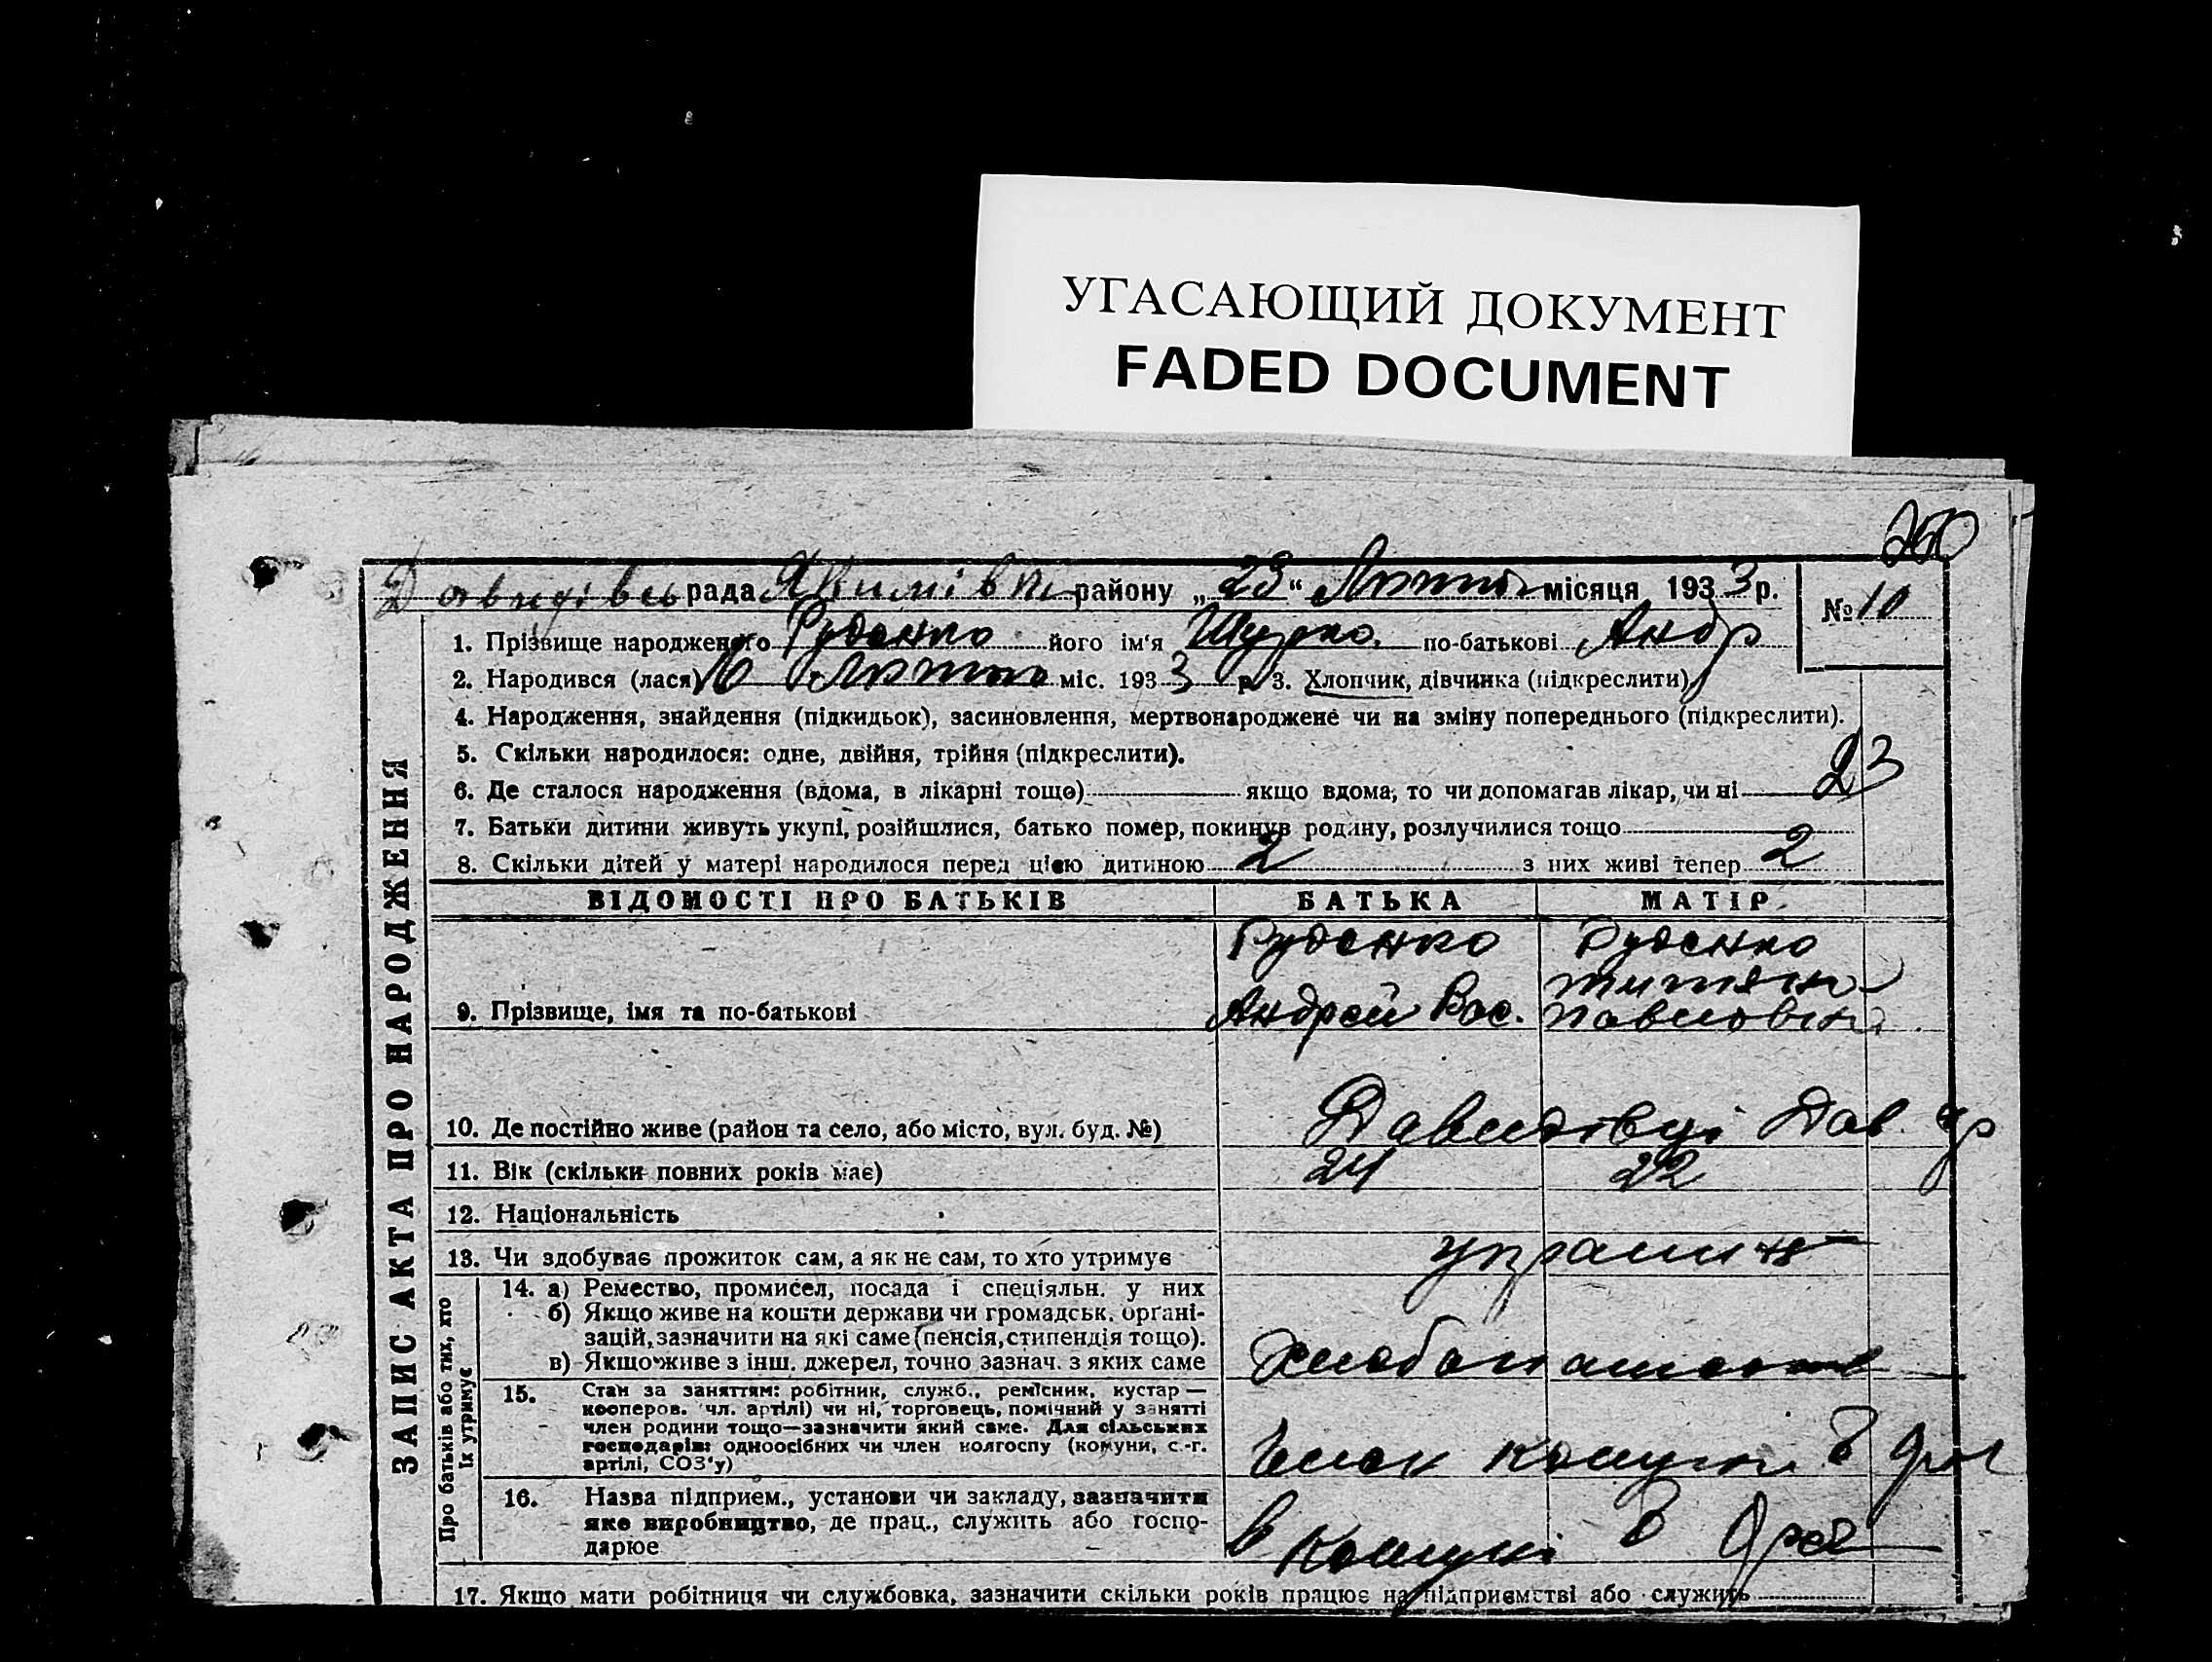 УГАСАЮЩИЙ ДОКУМЕНТ
FADED DOCUMENT
250
Давидівсь рада Якимівськ району „23“ Лютого місяця 1933 р. № 10
1. Прізвище народженого Руденко його ім'я Шурко по-батькові Андр
2. Народився (лася) 10 Лютого міс. 1933 р. 3. Хлопчик, дівчинка (підкреслити)
4. Народження, знайдення (підкидьок), засиновлення, мертвонароджене чи на зміну попереднього (підкреслити).
5. Скільки народилося: одне, двійня, трійня (підкреслити).
6. Де сталося народження (вдома, в лікарні тощо) якщо вдома, то чи допомагав лікар, чи ні 23
7. Батьки дитини живуть укупі, розійшлися, батько помер, покинув родину, розлучилися тощо
8. Скільки дітей у матері народилося перед цією дитиною 2 з них живі тепер 2
ВІДОМОСТІ ПРО БАТЬКІВ БАТЬКА МАТІР
Руденко Руденко
9. Прізвище, імя та по-батькові Андрей Вас. Павловна
10. Де постійно живе (район та село, або місто, вул. буд. №) Давидівці Дав.
11. Вік (скільки повних років має) 24 22
12. Національність
13. Чи здобуває прожиток сам, а як не сам, то хто утримує
14. а) Ремество, промисел, посада і спеціяльн. у них
б) Якщо живе на кошти держави чи громадськ. органі-
зацій, зазначити на які саме (пенсія, стипендія тощо).
в) Якщо живе з інш. джерел, точно зазнач. з яких саме
15. Стан за заняттям: робітник, служб., ремісник, кустар —
кооперов. чл. артілі) чи ні, торговець, помічний у занятті
член родини тощо—зазначити який саме. Для сільських
господарів: одноосібних чи член колгоспу (комуни, с.-г.
артілі, СОЗ'у) Член комуни
16. Назва підприєм., установи чи закладу, зазначити
яке виробництво, де прац., служить або госпо-
дарює в комуні
17. Якщо мати робітниця чи службовка, зазначити скільки років працює на підприємстві або служить
ЗАПИС АКТА ПРО НАРОДЖЕННЯ
Про батьків або тих, хто
їх утримує